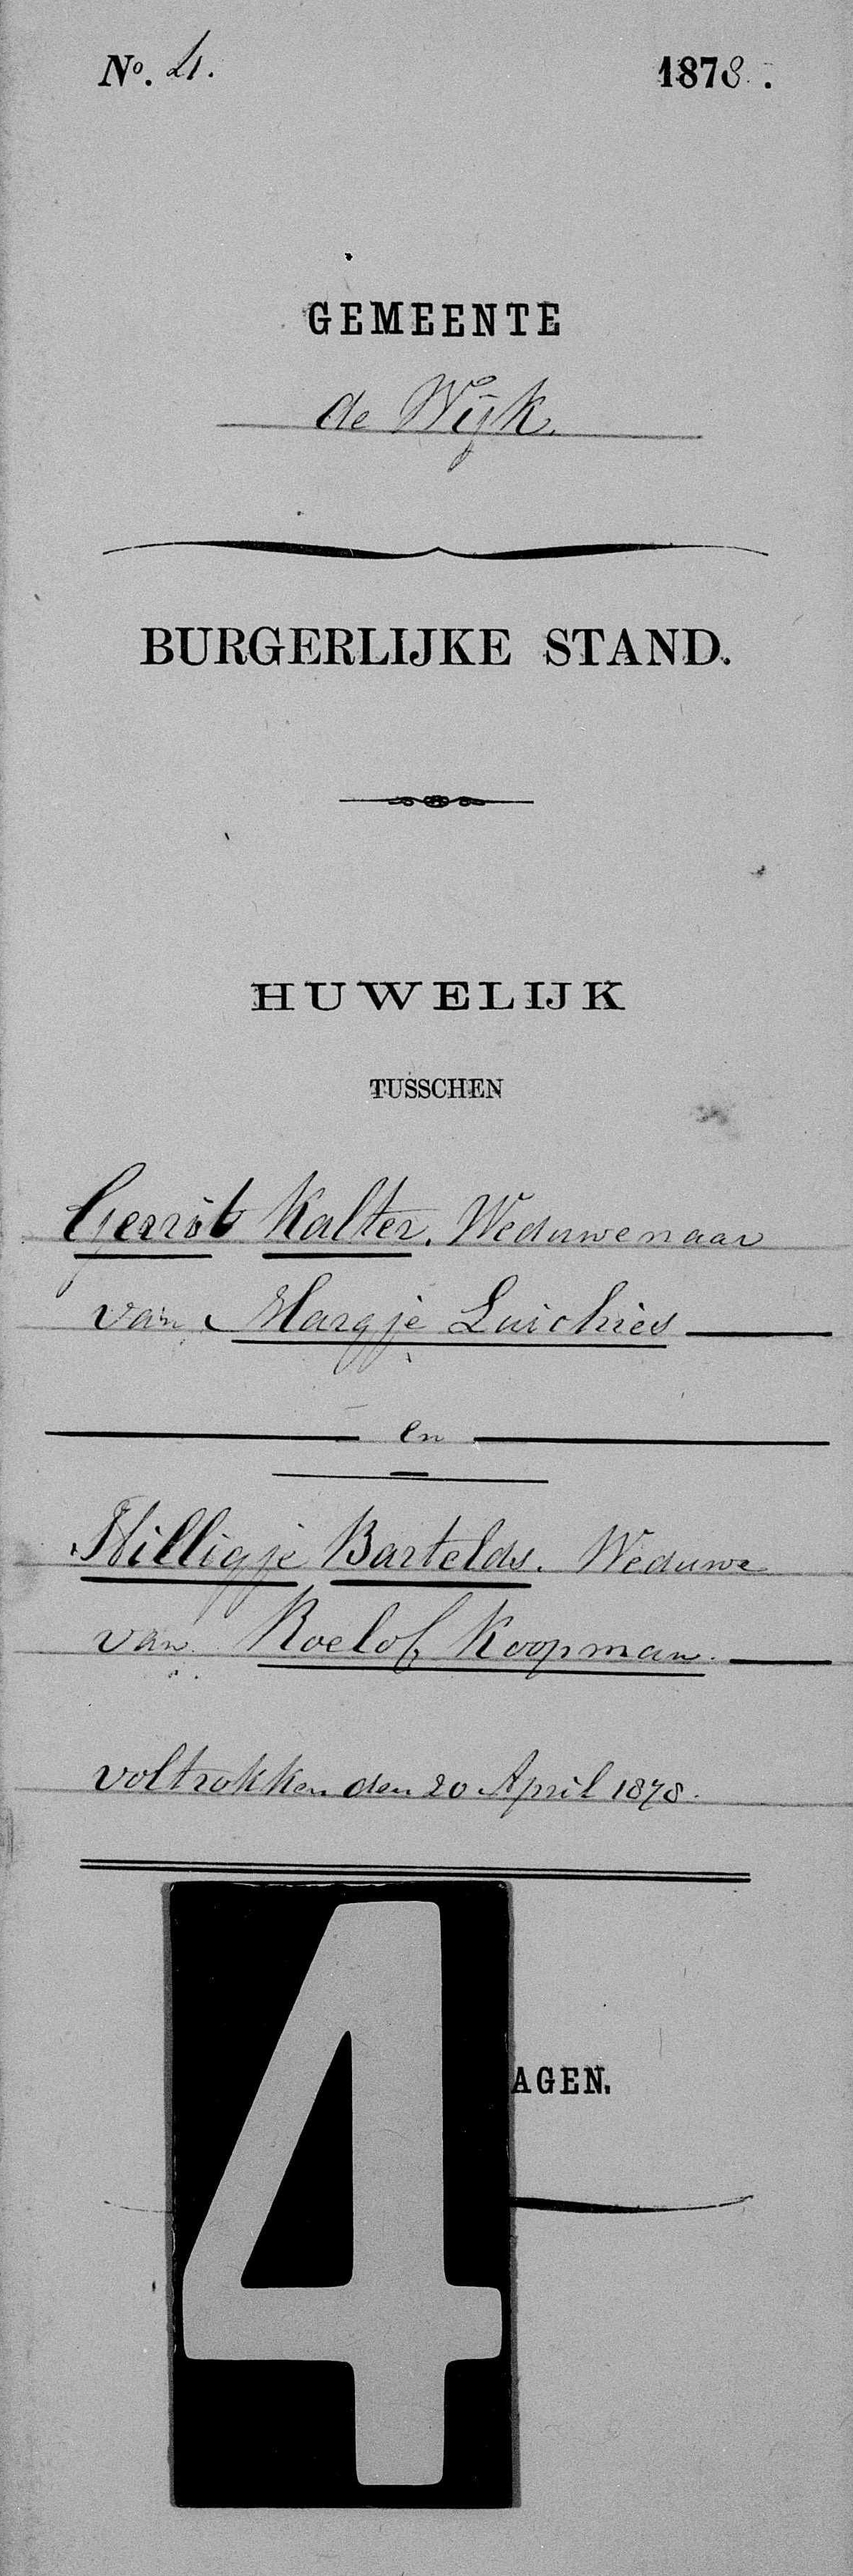 No. 4. 1878.
GEMEENTE
de Wijk.
BURGERLIJKE STAND.
HUWELIJK
TUSSCHEN
Gerrit Kalter. Weduwenaar
van Margje Luichies
en
Hilligje Bartelds. Weduwe
van Roelof Koopman.
voltrokken den 20 April 1878.
4
AGEN.